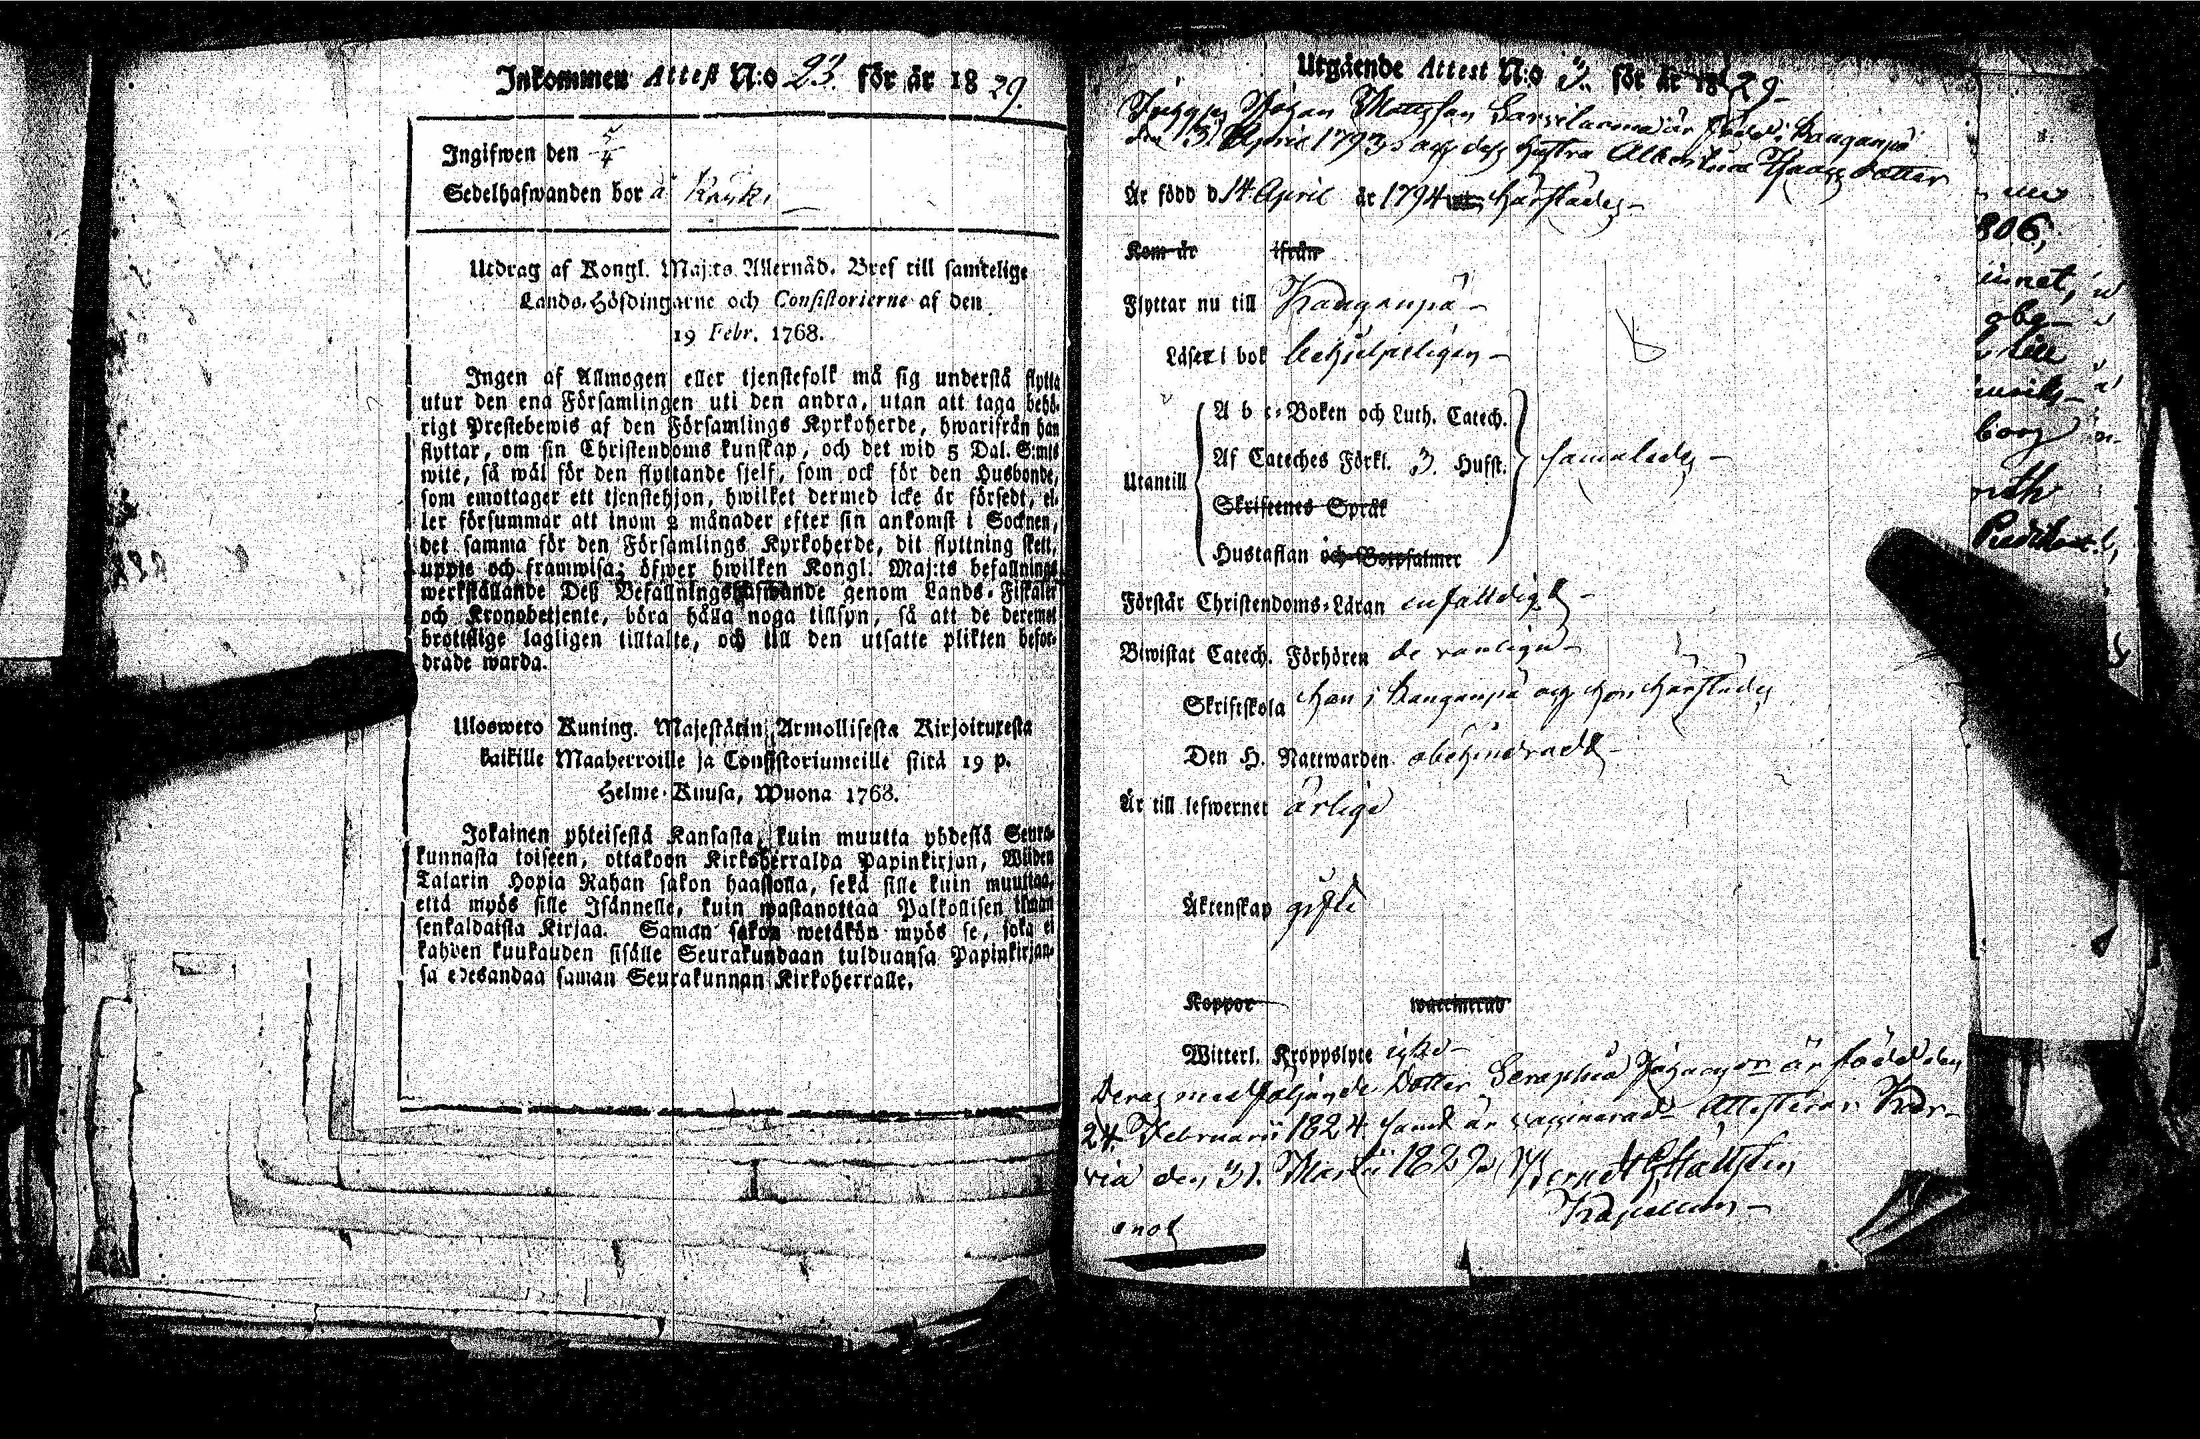 Inkommen Attest N:o 23. för år 1829.
Ingifwen den 5/4
Sedelhafwanden bor å
Utdrag af Kongl. Maj:ts Allernåd. Bref till samtelige
Lands-Höfdingarne och Consistorierne af den
19 Febr. 1768.
Ingen af Allmogen eller tjenstefolk må sig understå flytta
utur den ena Församlingen uti den andra, utan att taga behö-
rigt Prestebewis af den Församlings Kyrkoherde, hwarifrån han
flyttar, om sin Christendoms kunskap, och det wid 5 Dal. S:mts
wite, så wäl för den flyttande sjelf, som ock för den Husbonde,
som emottager ett tjenstehjon, hwilket dermed icke är försedt, el-
ler försummar att inom 2 månader efter sin ankomst i Socknen,
det samma för den Församlings Kyrkoherde, dit flyttning skett,
uppte och framwisa; öfwer hwilken Kongl. Maj:ts befallnings
werkställande Deß Befallningshafwande genom Lands-Fiskaler
och Kronobetjente, böra hålla noga tillsyn, så att de deremot
brottslige lagligen tilltalte, och till den utsatte plikten befor-
drade warda.
Ulosweto Kuning. Majestätin Armollisesta Kirjoituxesta
kaikille Maaherroille ja Consistoriumeille siitä 19 p.
Helme-Kuusa, Wuona 1768.
Jokainen yhteisestä Kansasta, kuin muutta yhdestä Seura-
kunnasta toiseen, ottakoon Kirkoherralda Papinkirjan, Wiiden
Talarin Hopia Rahan sakon haastolla, sekä sille kuin muuttaa,
että myös sille Isännelle, kuin wastanottaa Palkollisen ilman
senkaldaista Kirjaa. Saman sakon wetäkön myös se, joka ei
kahden kuukauden sisälle Seurakundaan tulduansa Papinkirjan-
sa edesandaa saman Seurakunnan Kirkoherralle.
Utgående Attest N:o 3. för år 1829.
Johan Mattsson är född i Kanganpä
den 13 April 1793, och dess hustru Albertina Isaacs dotter
Är född d. 14 April år 1794 härstädes
Kom år ifrån
Flyttar nu till Kanganpä
Läser i bok behjelpeligen
A b c-Boken och Luth. Catech.
Af Cateches Förkl. 3. Hufst. samaledes
Utantill
Skriftenes Språk
Hustaflan och Botpsalmer
Förstår Christendoms-Läran enfaldigt
Biwistat Catech. Förhören de vanliga
Skriftskola han i Kanganpä och hon härstädes
Den H. Nattwarden obehindradt
Är till lefwernet ärliga
Äktenskap gifte
Koppor waccinerad
Witterl. Kroppslyte
Deras medföljande Dotter Seraphia är född den
24 Februarii 1824 samt är vaccinerad. Attesterar
den 31. Martii 1829
806,